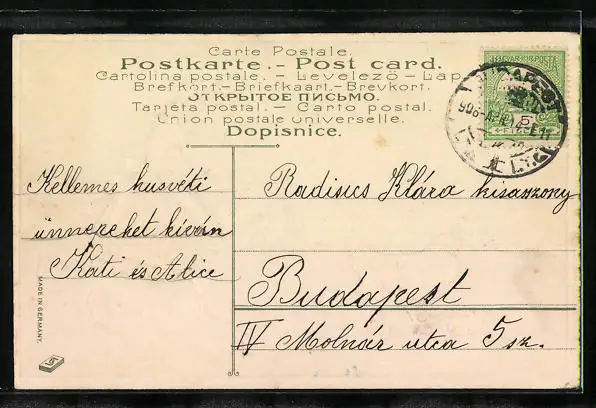 Carte Postale.
Postkarte.- Post card.
Cartolina postale. - Levelező - Lap.
Brefkort.- Briefkaart.- Brevkort.
ОТКРЫТОЕ ПИСЬМО.
Tarjeta postal. - Carto postal.
Union postale universelle.
Dopisnice.
MAGYAR KIR. POSTA
BUDAPEST
5
Kellemes husvéti
ünnepeket kíván
Kati és Alice
Radisics Klára kisasszony
Budapest
IV Molnár utca 5 sz.
MADE IN GERMANY.